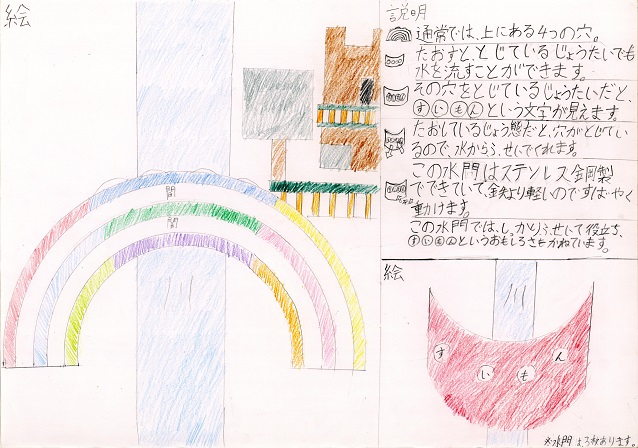 絵
開
閉
川
説明
通常では、上にある4つの穴。
たおすと、とじているじょうたいでも
水を流すことができます。
その穴をとじているじょうたいだと、
すいもんという文字が見えます。
たおしているじょう態だと、穴がとじてい
るので、水からふせいでくれます。
この水門はステンレス金岡製
でできていて、鉄より軽いのですばやく
動けます。
この水門では、しっかりふせいで役立ち、
すいもんというおもしろさもかねています。
絵
川
すいもん
※水門は、3枚あります。